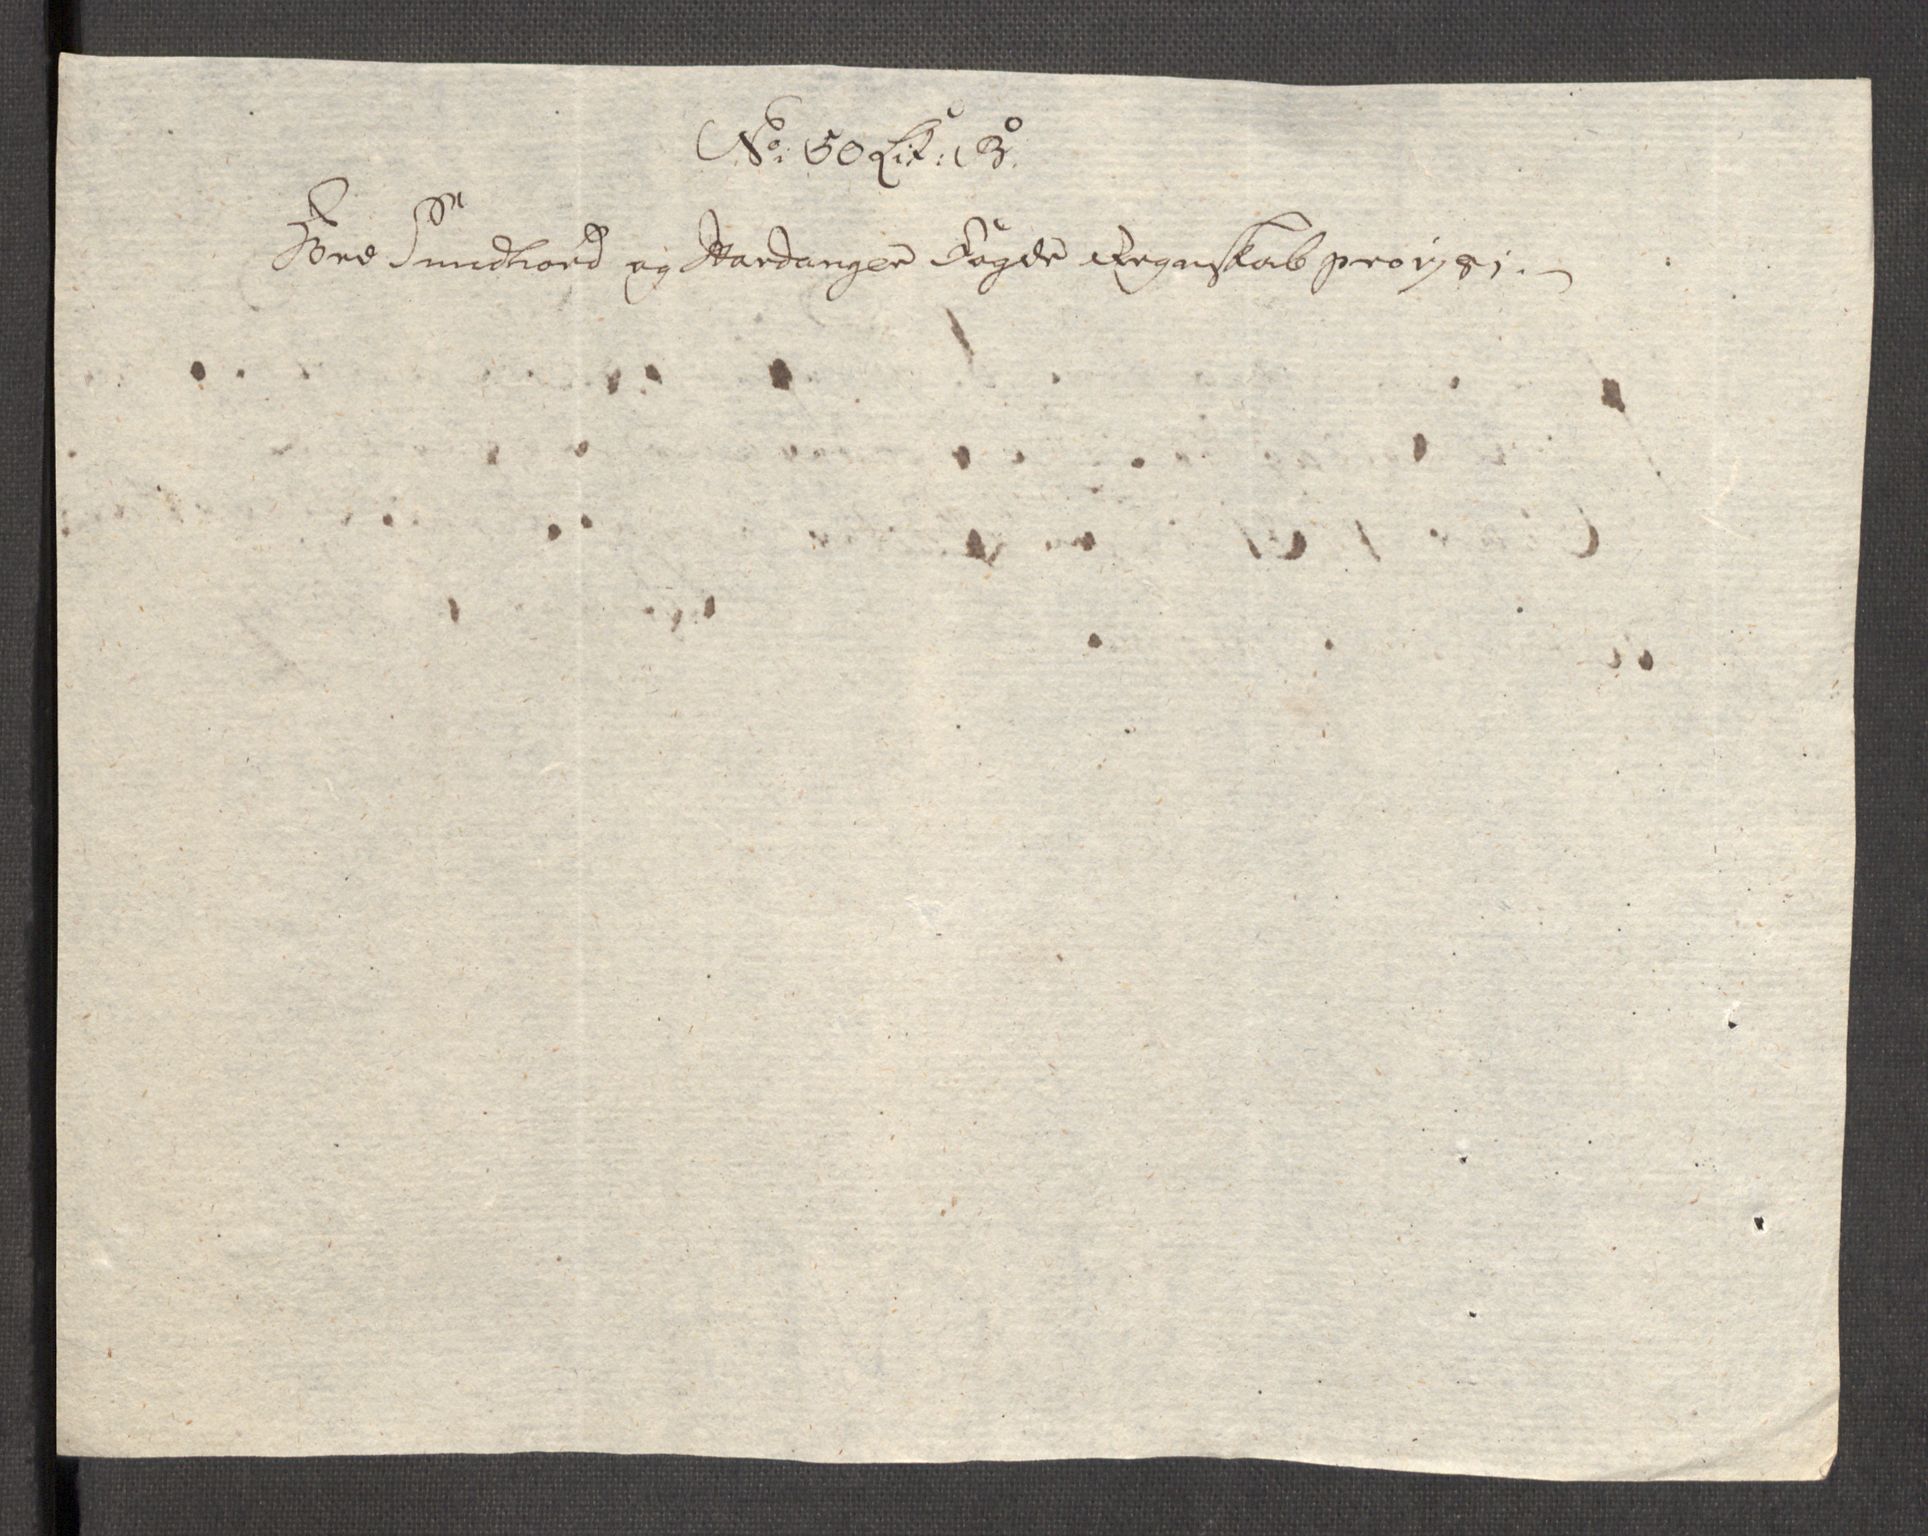 No: 50 Lit: B.
Ved Sundhord og Hardanger Fogde Regnskab pro 1781.